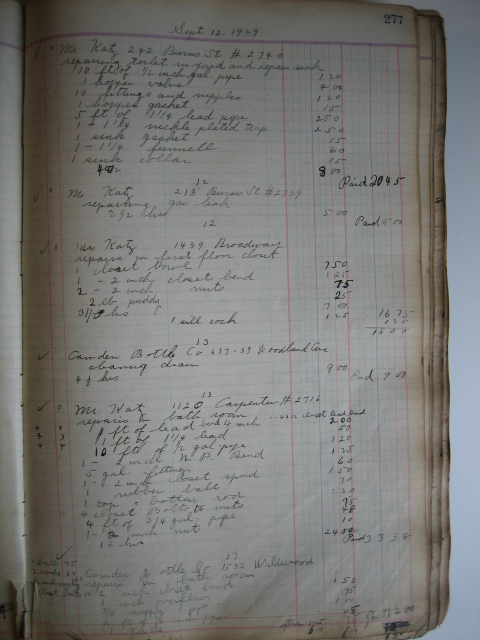 277
Sept 12. 1929
Mr. Katz 242 Burns St # 2740
repairing toilet in yard and repair sink
10 ft of 1/2 inch gal pipe 1 20
1 hopper valve 4 00
10 fittings and nipples 1 20
1 hopper gasket 15
5 ft of 1 1/4 lead pipe 2 50
1 - 1 1/4 nickle plated trap 2 50
1 sink gasket 15
1 - 1 1/4 funnell 60
1 sink collar 15
8 00
Paid 20 45
12
Mr. Katz 213 Burns St # 2739
repairing gas leak
2 1/2 hrs 5 00
Paid 5 00
12
Mr Katz 1439 Broadway
repairs in first floor closet
1 closet bowl 7 50
1 - 2 inch closet bend 1 25
2 - 2 inch nuts 75
2 lb puddy 25
3 1/2 hrs 7 00
1 sill cock 1 25
16 75
1 25
13
Camden Bottle Co 637-39 Woodland Ave
cleaning drain
4 1/2 hrs 9 00
Paid 9 00
13
Mr. Katz 1120 Carpenter # 2716
repairs bath room
ft of lead 4 inch 2 00
1 ft of 1 1/4 lead 50
10 ft of 1/2 gal pipe 1 20
1 - 2 inch N. P. Bend 1 25
5 gal fittings 60
1 - 2 inch closet spud 1 50
1 rubber ball 70
1 top & bottom rod 30
4 closet Bolts & nuts
4 ft of 3/4 gal pipe
1 - inch nut 10
12 hrs 24 00
Paid
17
Camden Bottle Co 1532 Wildwood
repairs in bath room
2 inch closet bend 1 50
1 inch 75
supply pipe